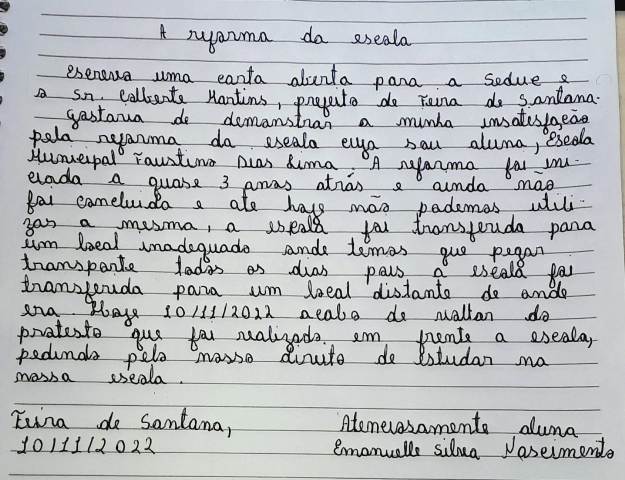 A reforma da escola
Escrevo uma carta aberta para a Seduc e
o Sr. Colberte Martins, prefeito de Feira de Santana.
Gostaria de demonstrar a minha insatisfação
pela reforma da escola cuja sou aluna, Escola
Municipal Faustino Dias Lima. A reforma foi ini-
ciada a quase 3 anos atrás e ainda não
foi concluida e até hoje não podemos utili-
zar a mesma, a escola foi transferida para
um local inadequado onde temos que pegar
transporte todos os dias pois a escola foi
transferida para um local distante de onde
era. Hoje 10/11/2022 acabo de voltar do
protesto que foi realizado em frente a escola,
pedindo pelo nosso direito de estudar na
nossa escola.
Feira de Santana, Atenciosamente aluna
10/11/2022 Emanuelle Silva Nascimento